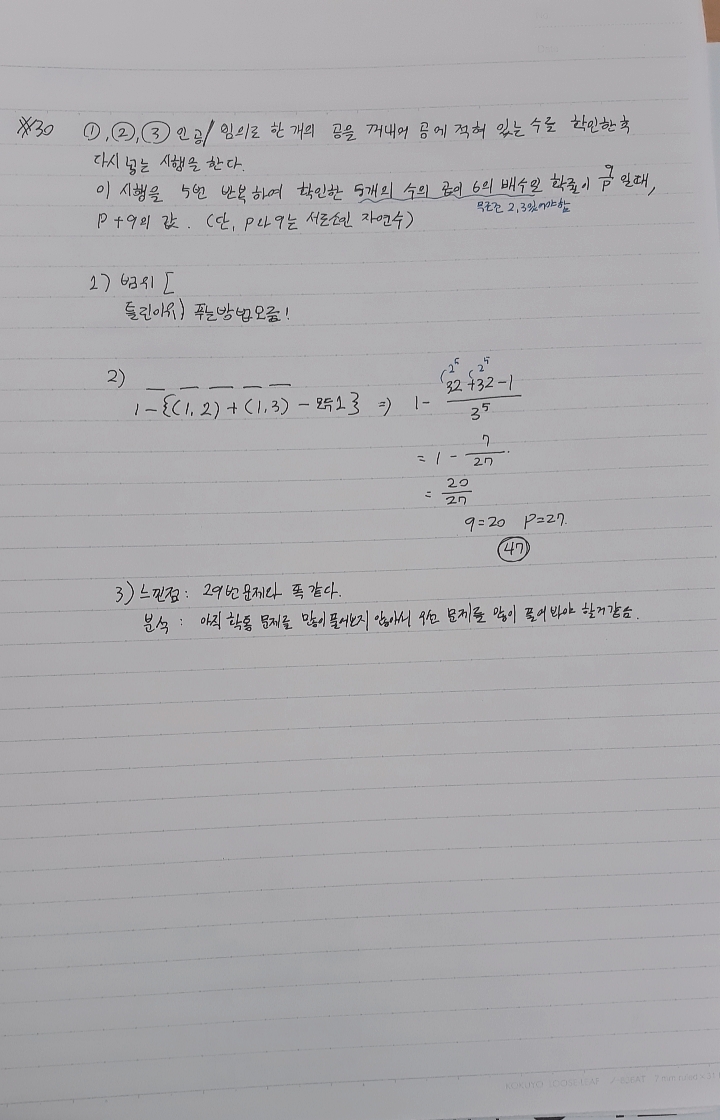 ※30 ①,②,③ 인 공/ 임의로 한 개의 공을 꺼내어 공에 적혀 있는 수를 확인한 후
다시 넣는 시행을 한다.
이 시행을 5번 반복하여 확인한 5개의 수의 곱이 6의 배수일 확률이 q/p 일때,
무조건 2,3있어야함
p+q의 값. (단, p와 q는 서로소인 자연수)
1) 범위 [
틀린이유) 푸는방법모름!
2) _ _ _ _ _
1-{(1,2)+(1,3)-모두1} => 1- (32+32-1)/3⁵
2⁵ 2⁵
= 1 - 7/27
= 20/27
q=20 p=27.
47
3) 느낀점: 29번문제와 똑같다.
분석: 아직 확통 문제를 많이 풀어보지 않아서 우선 문제를 많이 풀어 봐야 할거같음.
KOKUYO LOOSE-LEAF